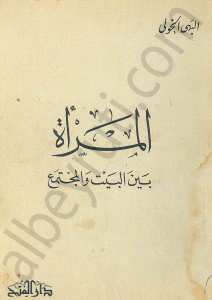 البهي الخولي
المرأة
بين البيت والمجتمع
دار الفتح
albeyrouti.com